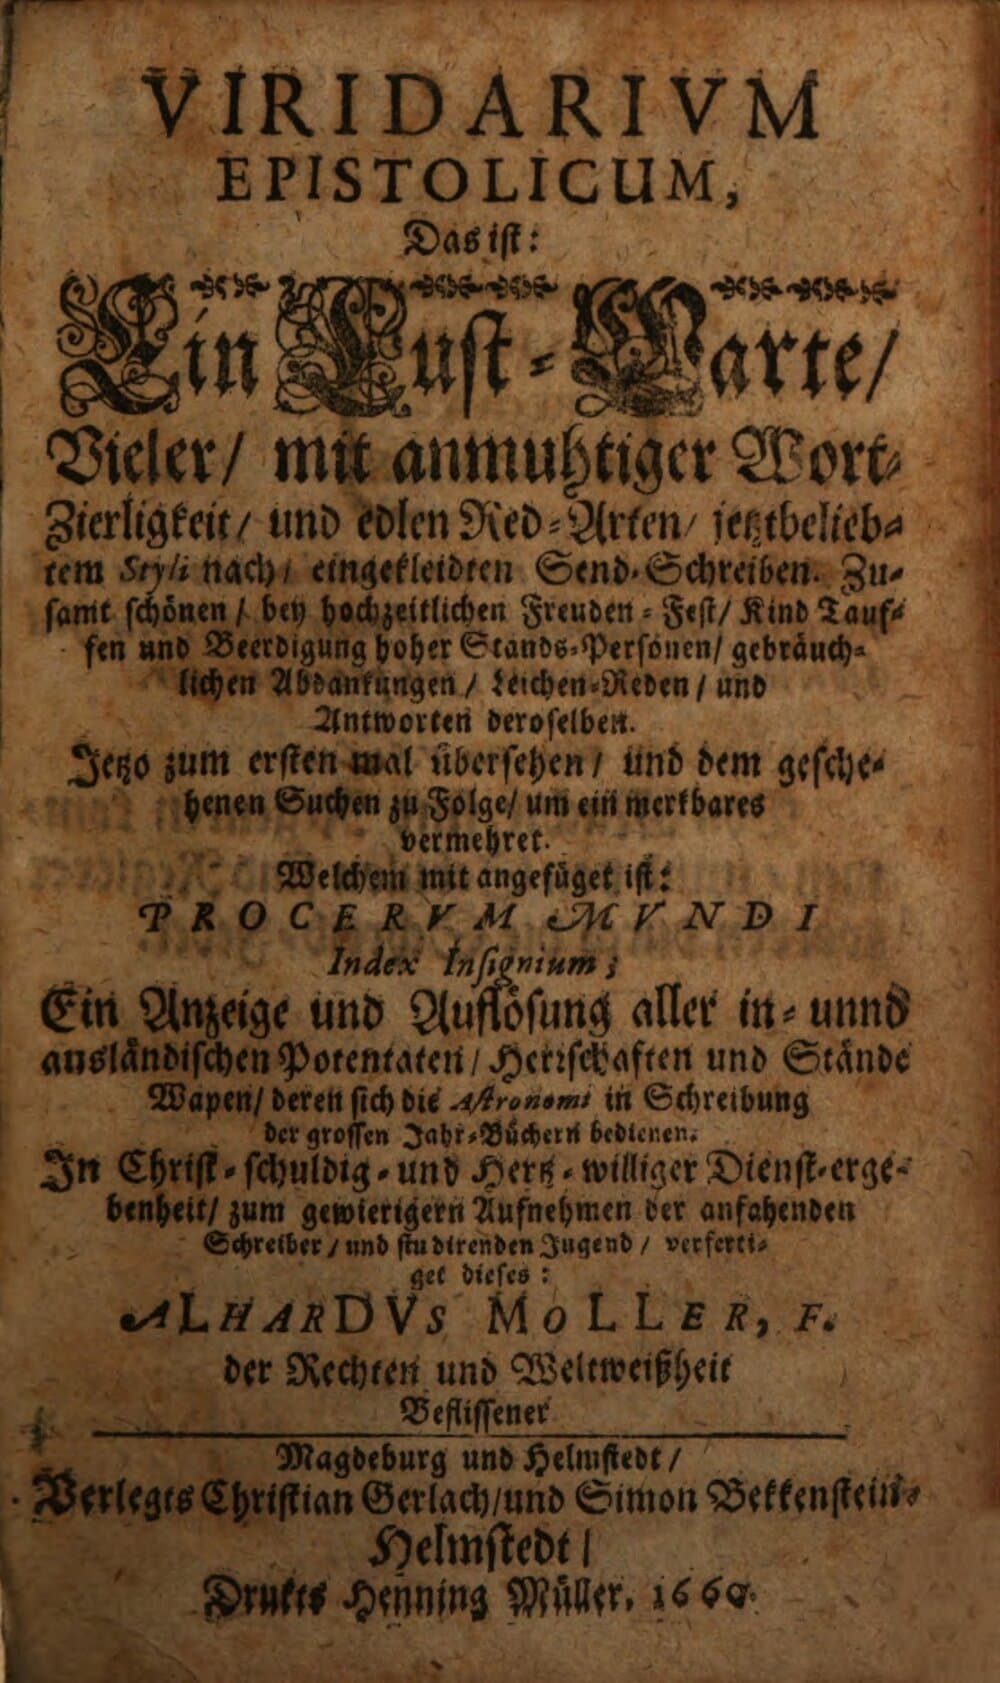 VIRIDARIVM
EPISTOLICUM,
Das ist:
Ein Lust-Warte/
Vieler/ mit anmuhtiger Wort-
Zierligkeit/ und edlen Red-Arten/ jetztbelieb-
tem Styli nach/ eingekleidten Send-Schreiben. Zu-
samt schönen/ bey hochzeitlichen Freuden-Fest/ Kind Tauf-
fen und Beerdigung hoher Stands-Personen/ gebräuch-
lichen Abdankungen/ Leichen-Reden/ und
Antworten deroselben.
Jetzo zum ersten mal übersehen/ und dem gesche-
henen Suchen zu Folge/ um ein merkbares
vermehret.
Welchem mit angefüget ist:
PROCERVM MVNDI
Index Insignium;
Ein Anzeige und Auflösung aller in- unnd
ausländischen Potentaten/ Herrschaften und Stände
Wapen/ deren sich die Astronomi in Schreibung
der grossen Jahr-Büchern bedienen.
In Christ-schuldig-und Hertz-williger Dienst-erge-
benheit/ zum gewierigern Aufnehmen der anfahenden
Schreiber/ und studirenden Jugend/ verferti-
get dieses:
ALHARDVS MOLLER, F.
der Rechten und Weltweißheit
Beflissener
Magdeburg und Helmstedt/
Verlegts Christian Gerlach/und Simon Bekkenstein.
Helmstedt/
Drukts Henning Müller.